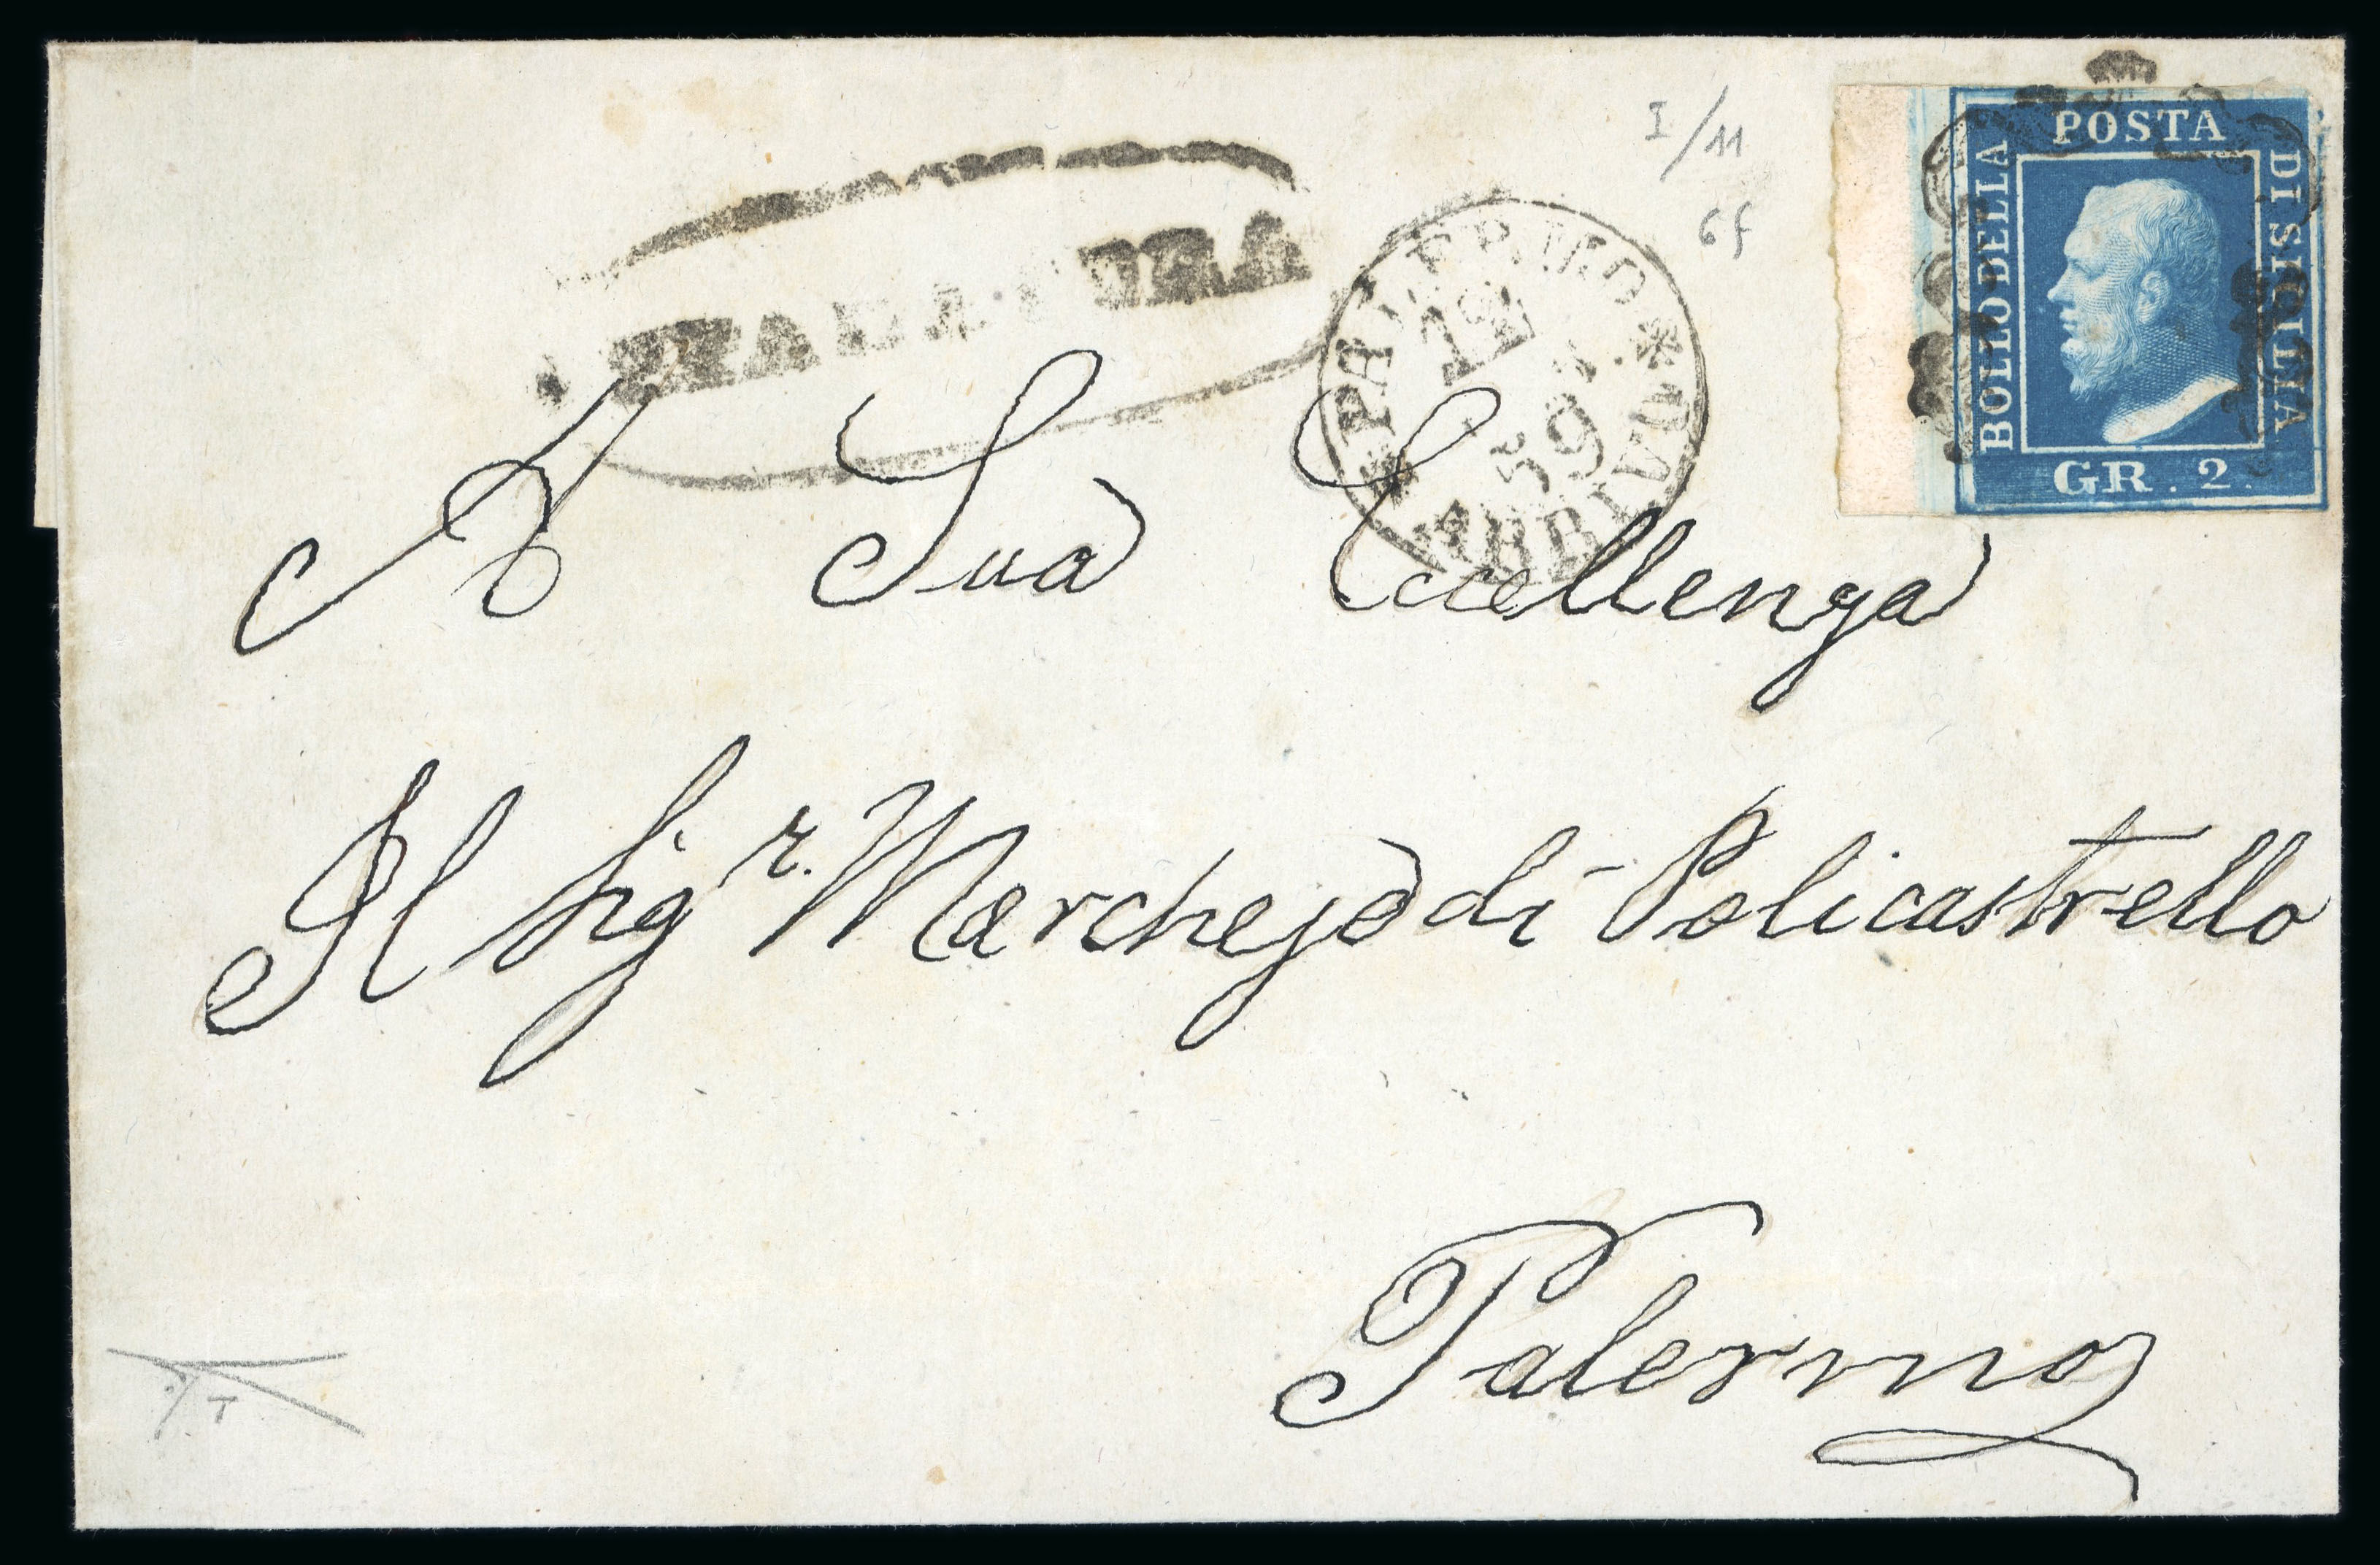 I/11
6f
POSTA
BOLLO DELLA
DI SICILIA
GR. 2.
PALERMO
12
59
ARRIVO
A Sua Eccellenza
Il Sigr. Marchese di Policastrello
Palermo